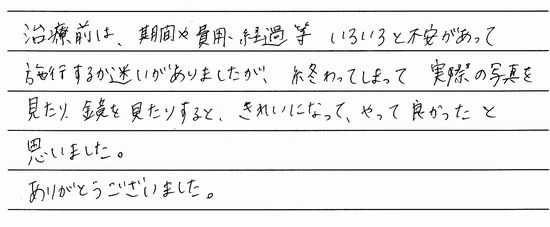 治療前は、期間や費用、経過等 いろいろと不安があって
施行するか迷いがありましたが、終わってしまって 実際の写真を
見たり 鏡を見たりすると、きれいになって、やって良かったと
思いました。
ありがとうございました。